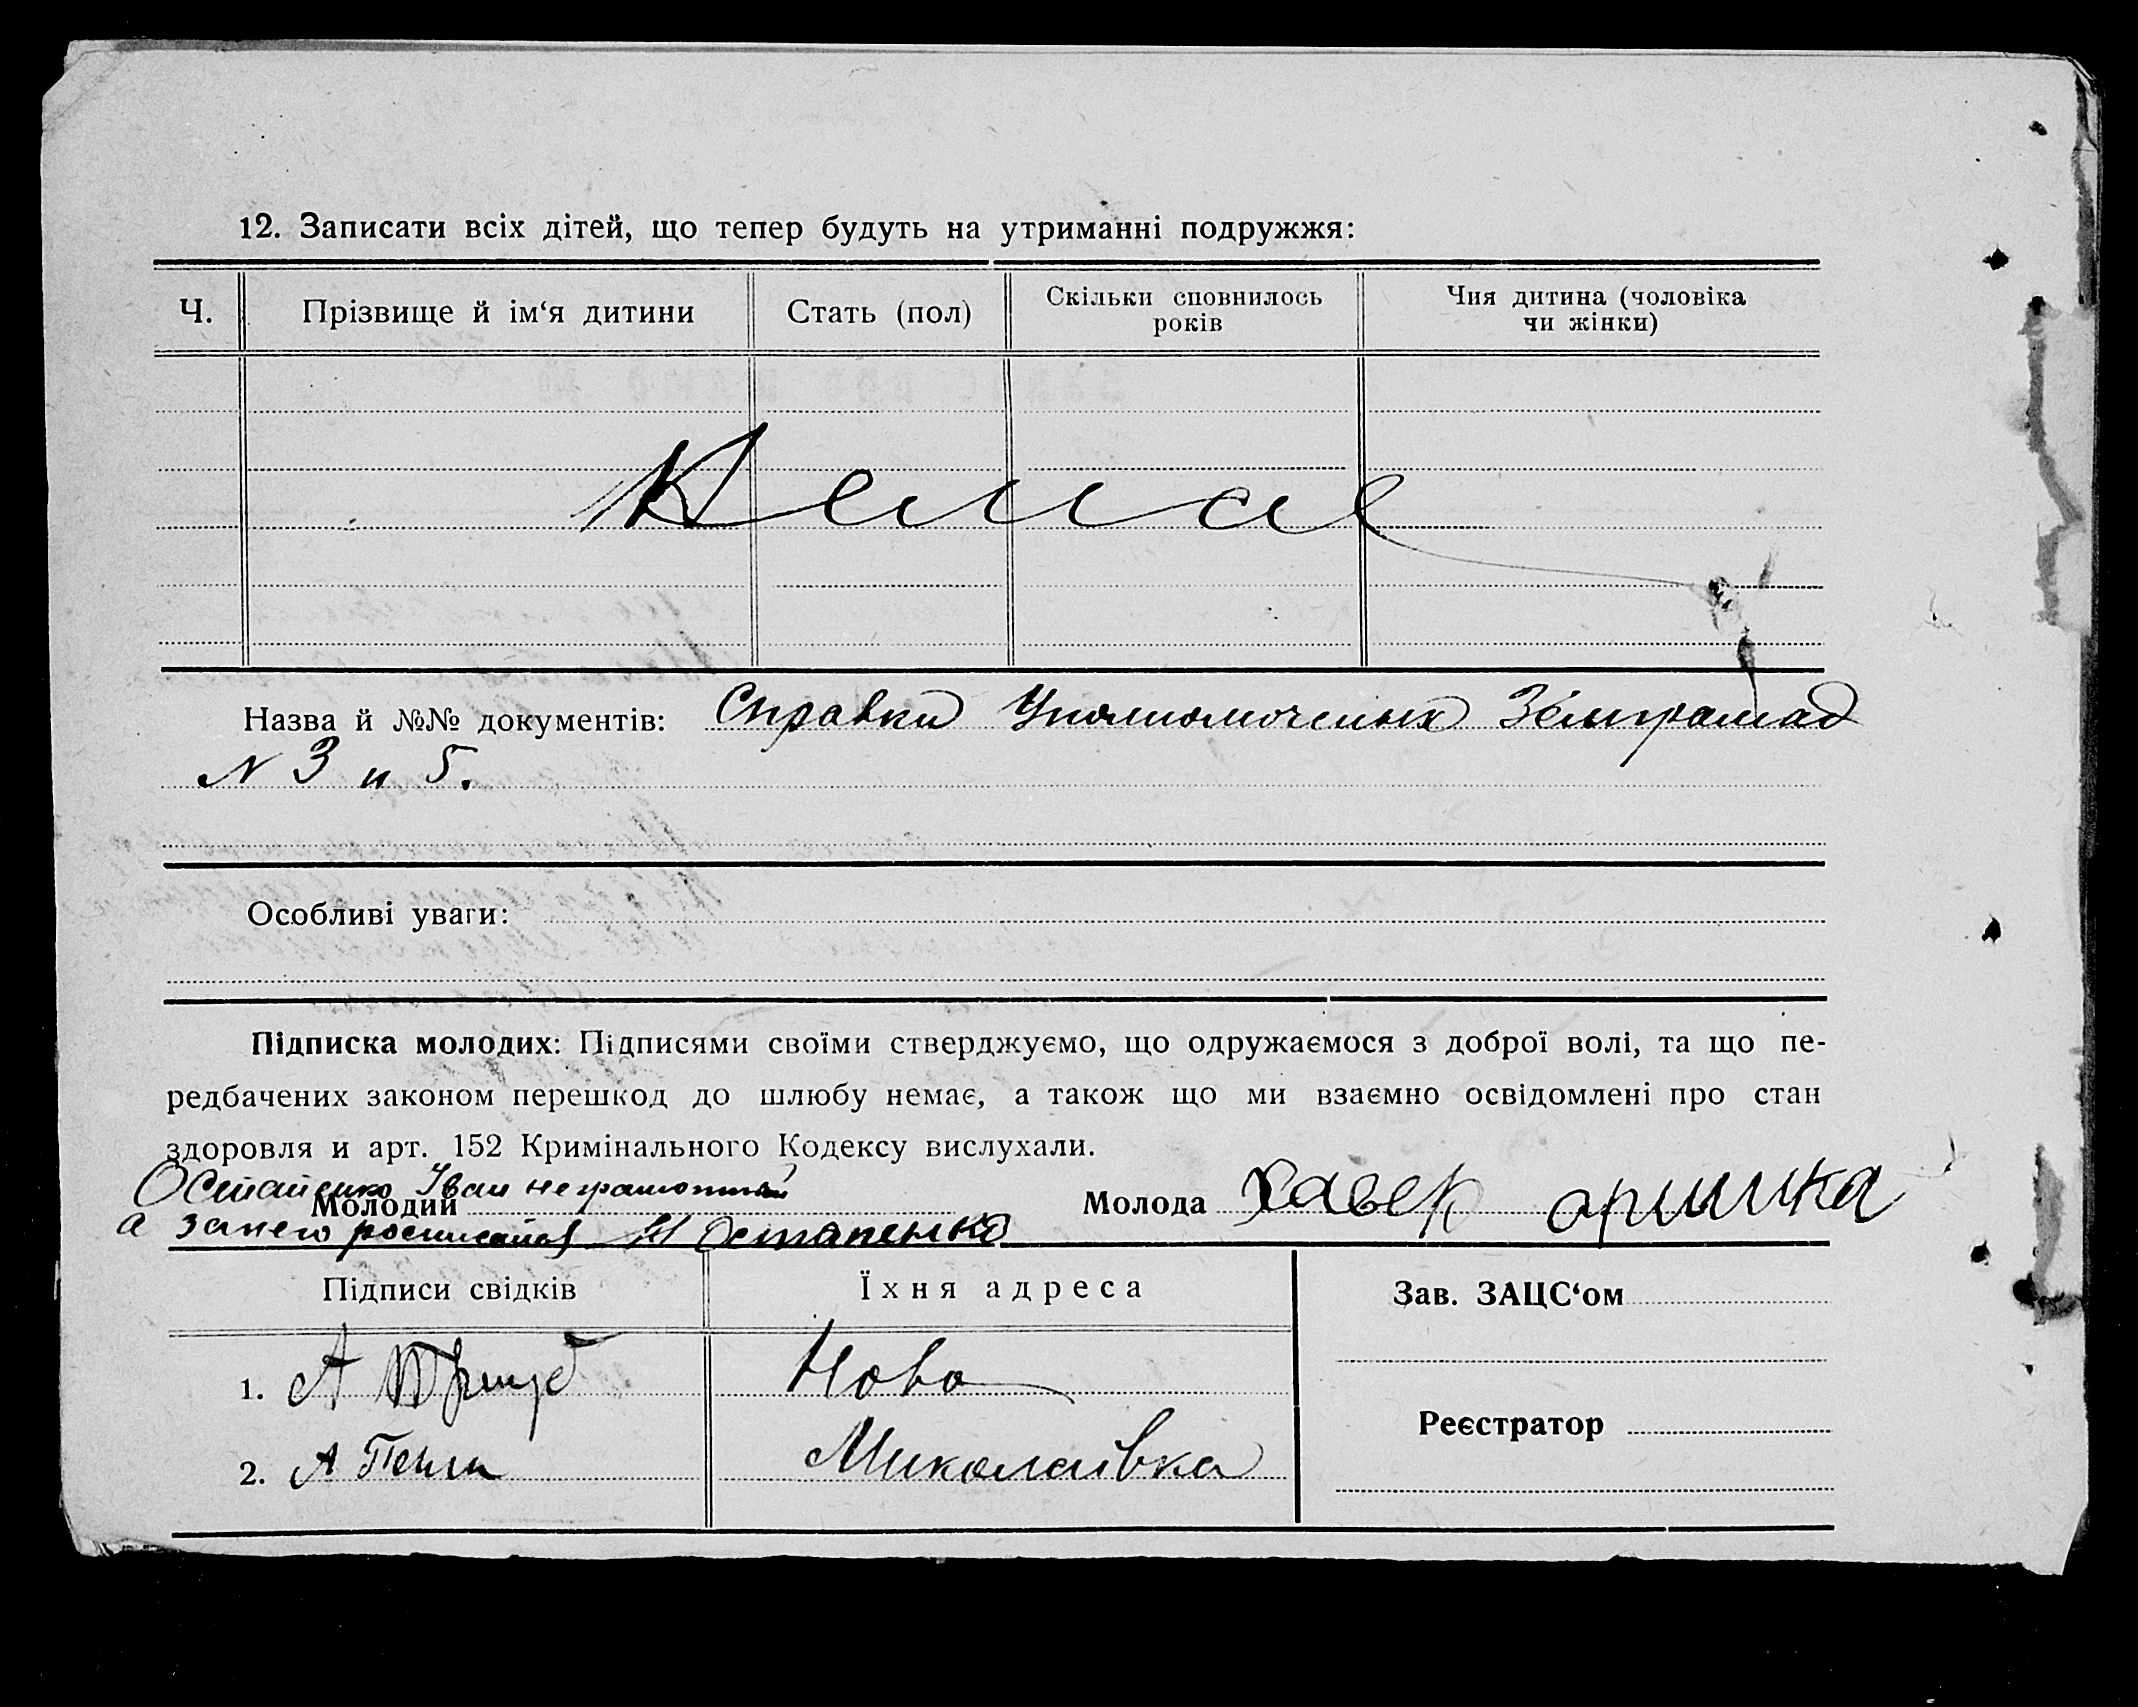 12. Записати всіх дітей, що тепер будуть на утриманні подружжя:
Ч. Прізвище й ім‘я дитини Стать (пол) Скільки сповнилось років Чия дитина (чоловіка чи жінки)
Нема
Назва й №№ документів: Справки Уполномоченых
N 3 и 5.
Особливі уваги:
Підписка молодих: Підписями своїми стверджуємо, що одружаємося з доброї волі, та що пе-
редбачених законом перешкод до шлюбу немає, а також що ми взаємно освідомлені про стан
здоровля и арт. 152 Кримінального Кодексу вислухали.
Остапенко Іван неграмотный
Молодий
а занего росписался Остапенко
Молода оришка
Підписи свідків Їхня адреса Зав. ЗАЦС‘ом
1. А Ново
Реєстратор
2. А Миколаівка